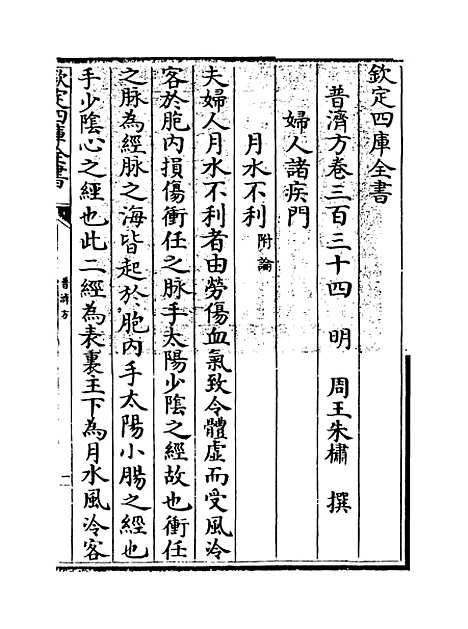 欽定四庫全書
普濟方卷三百三十四　明　周王朱橚　撰
婦人諸疾門
月水不利附論
夫婦人月水不利者由勞傷血氣致令體虛而受風冷
客於胞内損傷衝任之脉手太陽少陰之經故也衝任
之脉為經脉之海皆起於胞内手太陽小腸之經也
手少陰心之經也此二經為表裏主下為月水風冷客
欽定四庫全書
普濟方
一